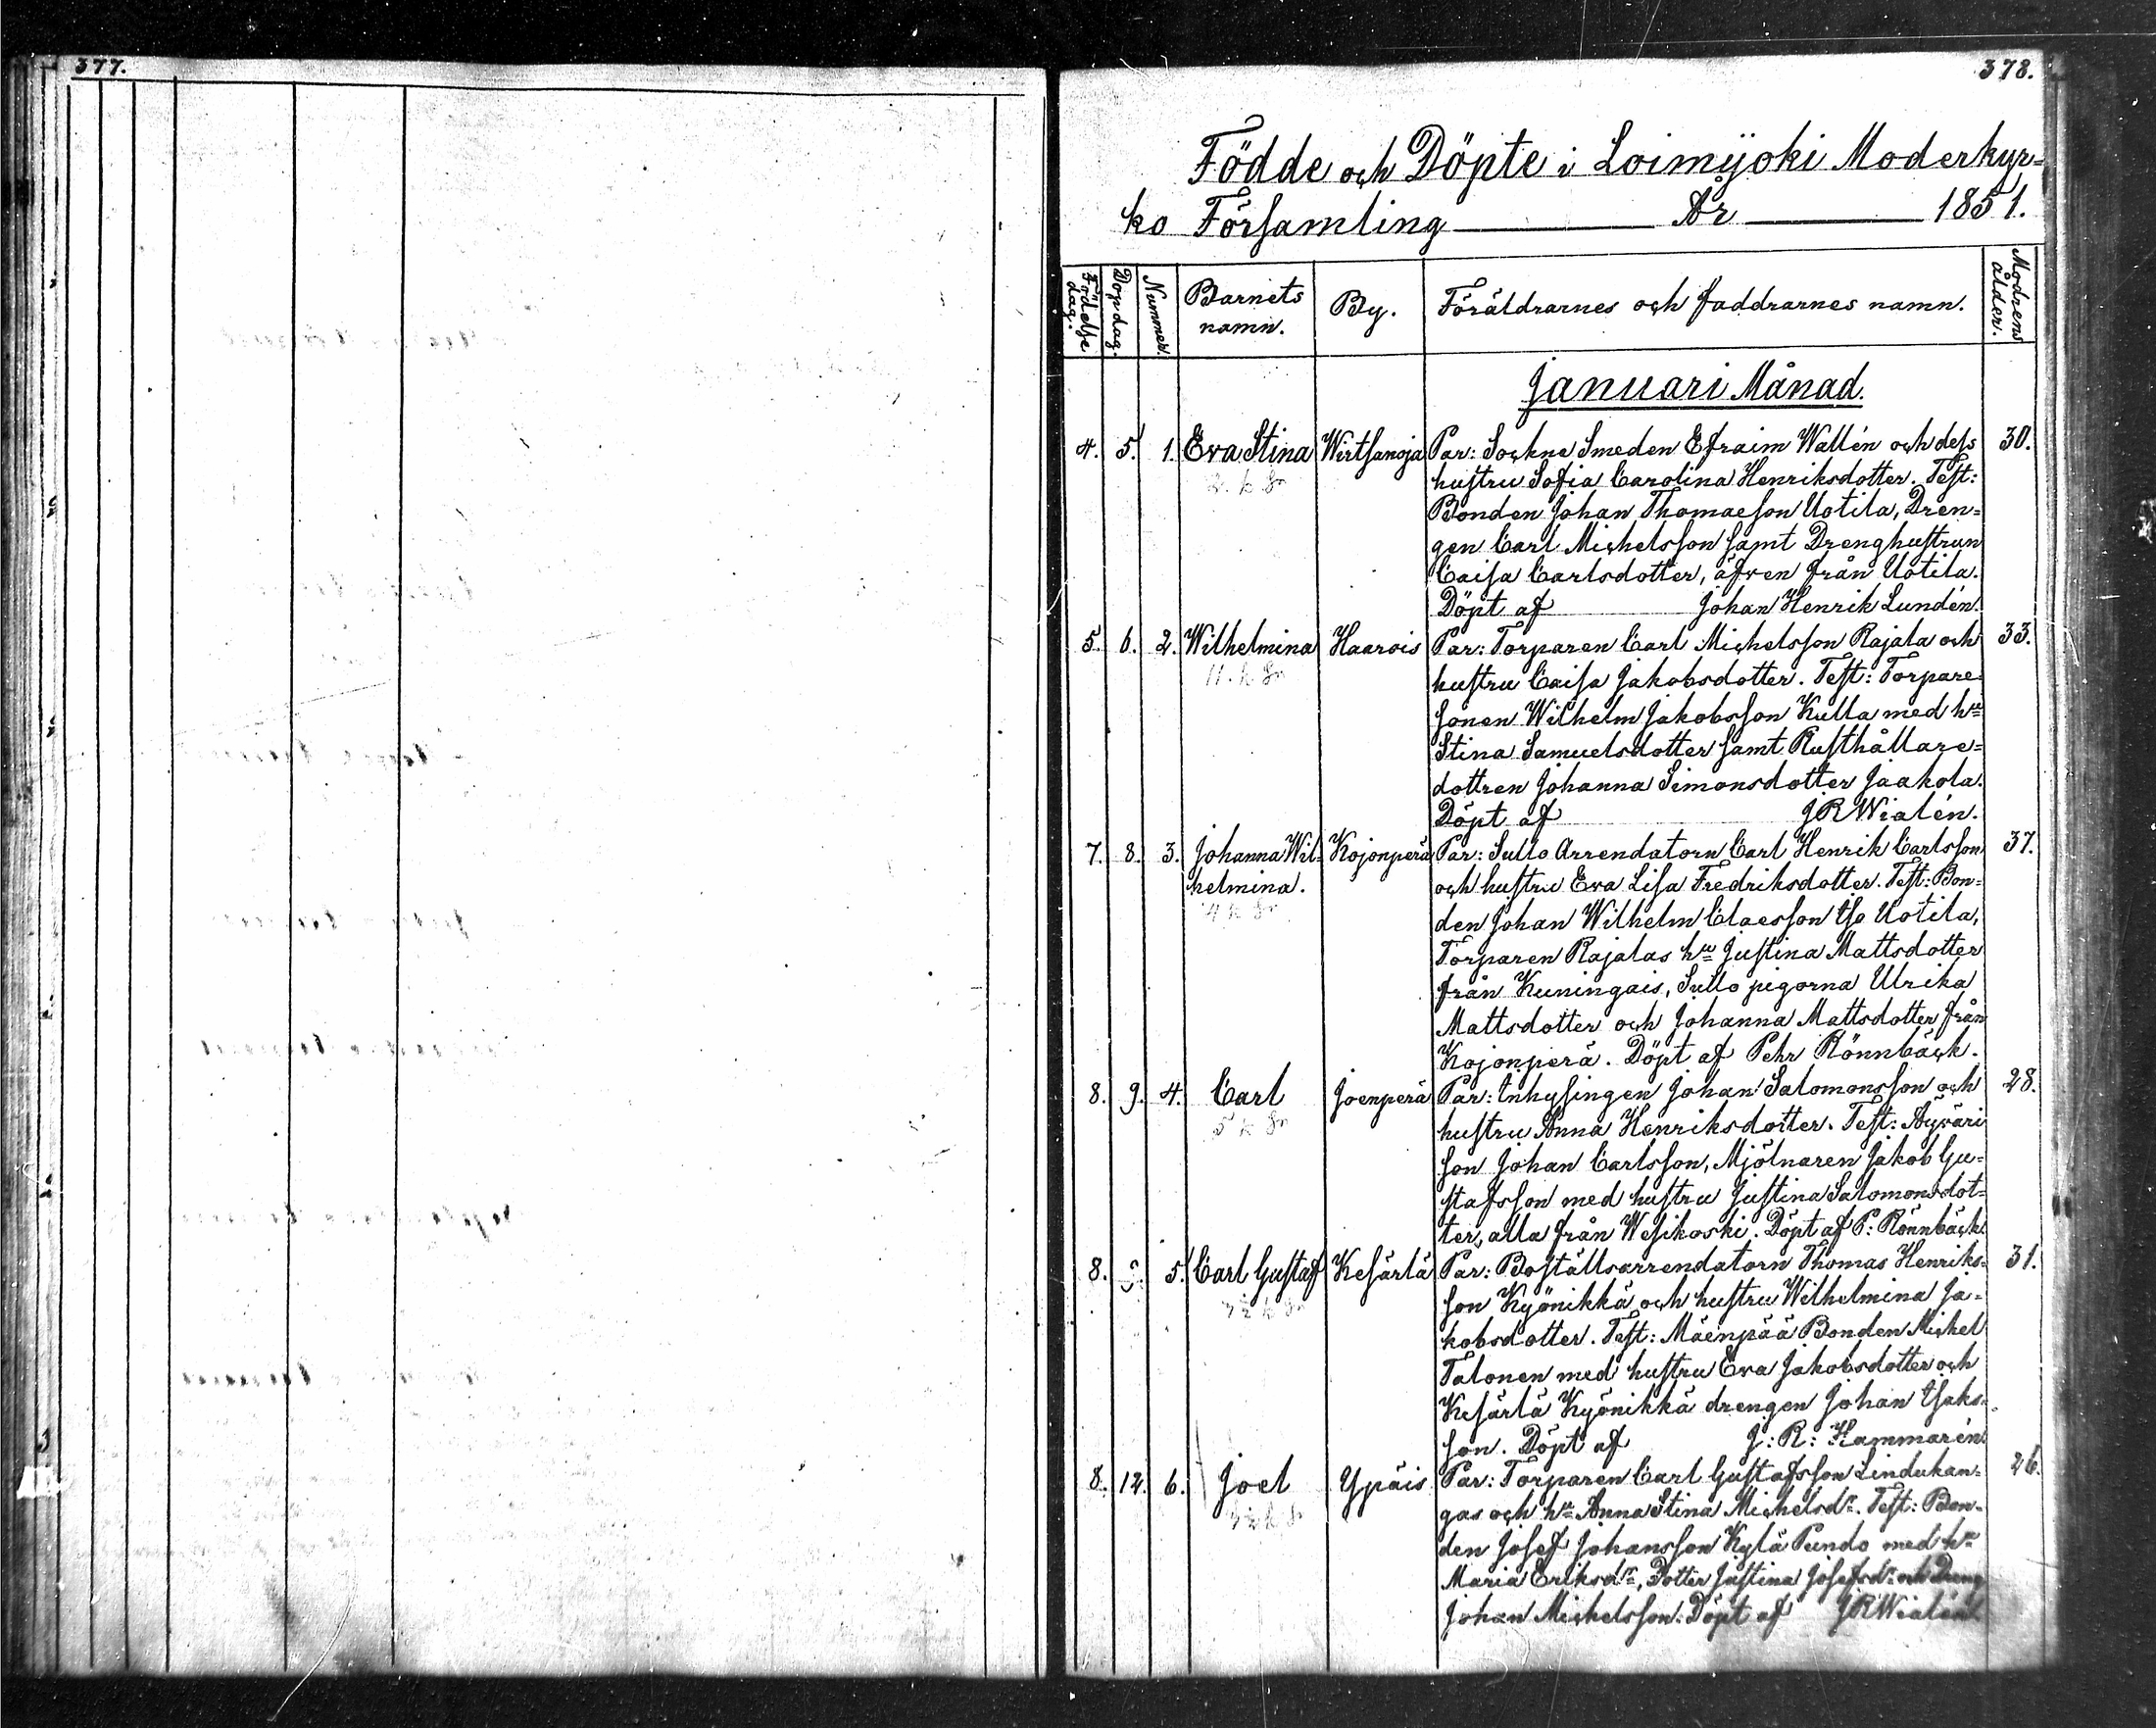 377.
378.
Födde och Döpte i Loimijoki Moderkyr-
ko Församling År 1851.
Födelse dag. Dopdag. Nummer. Barnets namn. By. Föräldrarnes och faddrarnes namn. Modrens ålder.
Januari Månad.
4. 5. 1. Eva Stina Wirtsanoja Par: Sockne Smeden Efraim Wallén och dess 30.
hustru Sofia Carolina Henriksdotter. Test:
Bonden Johan Thomaesson Uotila, Dren-
gen Carl Michelsson samt Drenghustrun
Caisa Carlsdotter, äfven från Uotila.
Döpt af Johan Henrik Lundén.
5. 6. 2. Wilhelmina Haarois Par: Torparen Carl Michelsson Rajala och 33.
hustru Caisa Jakobsdotter. Test: Torpare
sonen Wilhelm Jakobsson Kulla med hu
Stina Samuelsdotter samt Rusthållare-
dottren Johanna Simonsdotter Jaakola.
Döpt af JRWialén.
7. 8. 3. Johanna Wil- Kojonperä Par: Sullo Arrendatorn Carl Henrik Carlsson 37.
helmina. och hustru Eva Lisa Fredriksdotter. Test: Bon-
den Johan Wilhelm Claesson Iso Uotila,
Torparen Rajalas hu Justina Mattsdotter
från Kuningais, Sullo pigorna Ulrika
Mattsdotter och Johanna Mattsdotter från
Kojonperä. Döpt af Pehr Rönnbäck.
8. 9. 4. Carl Joenperä Par: Inhysingen Johan Salomonsson och 28.
hustru Anna Henriksdotter. Test: Äyväri
son Johan Carlsson, Mjölnaren Jakob Gu-
stafsson med hustru Justina Salomonsdot-
ter, alla från Wesikoski. Döpt af P: Rönnbäck.
8. 9. 5. Carl Gustaf Kesärlä Par: Boställsarrendatorn Thomas Henriks- 31.
son Kyönikkä och hustru Wilhelmina Ja-
kobsdotter. Test: Mäenpää Bonden Michel
Talonen med hustru Eva Jakobsdotter och
Kesärlä Kyönikkä drengen Johan Isaks-
son. Döpt af J: R: Hammarén.
8. 12. 6. Joel Ypäis Par: Torparen Carl Gustafsson Lindukan- 26.
gas och hu Anna Stina Michelsdr. Test: Bon-
den Josef Johansson Kylä Pundo med hu
Maria Eriksdr, Dotter Justina Josefsdr och Dreng
Johan Michelsson. Döpt af JRWialén.